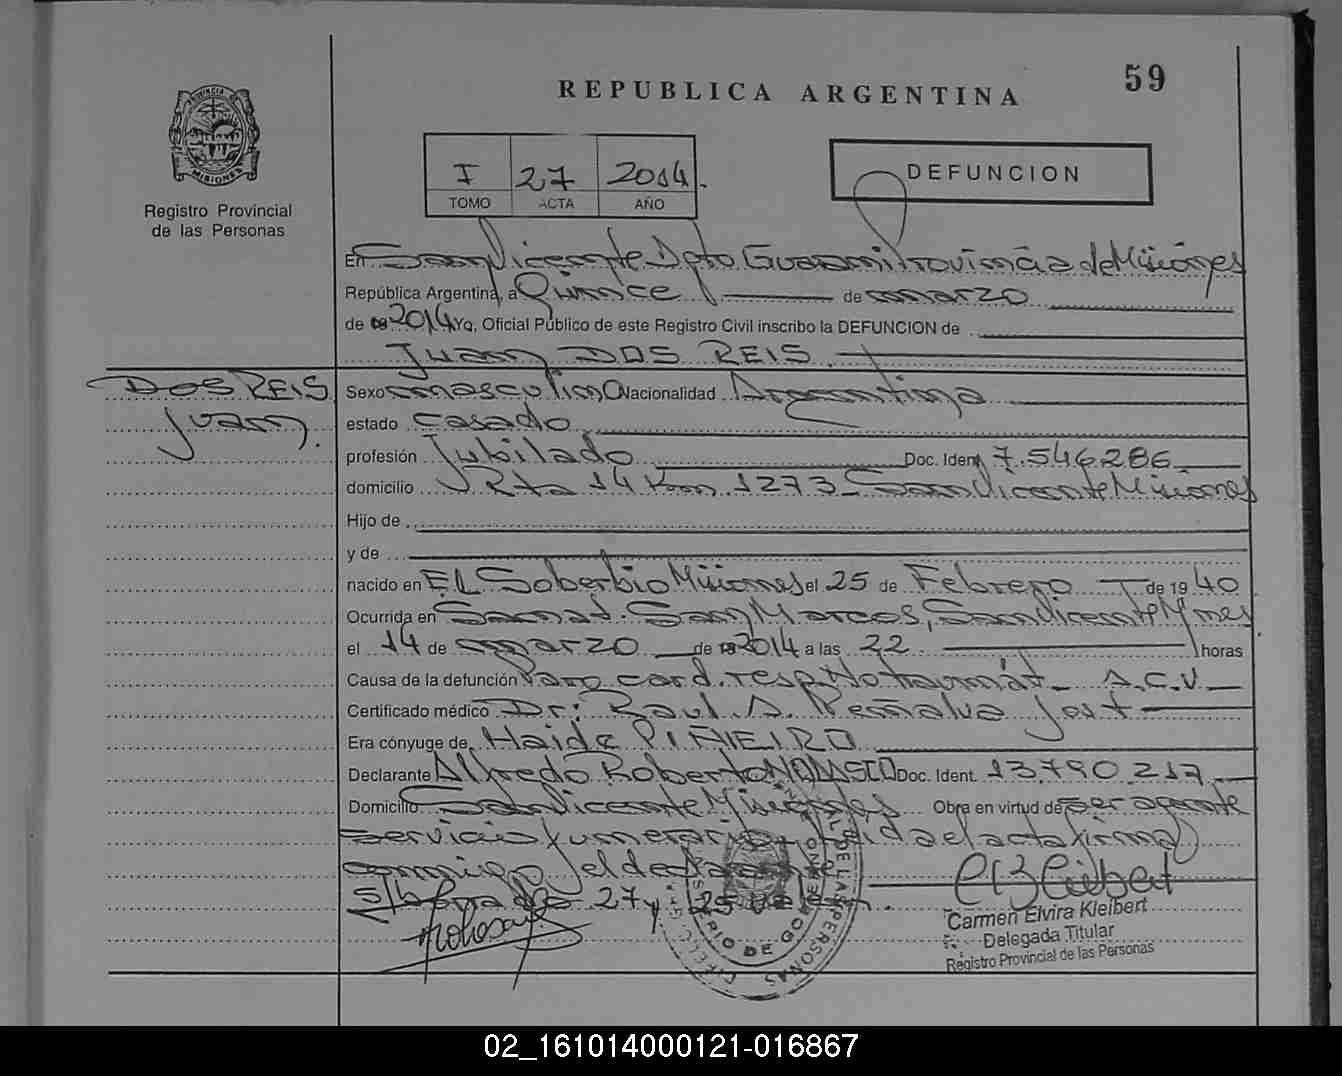 59
REPUBLICA ARGENTINA
PROVINCIA DE
MISIONES
Registro Provincial
de las Personas
I 27 2014.
TOMO ACTA AÑO
DEFUNCION
En San Vicente Dpto Guaraní Provincia de Misiones
República Argentina, a Quince de marzo
de 2014 Yo, Oficial Público de este Registro Civil inscribo la DEFUNCION de
Juan DOS REIS
DOS REIS
Juan.
Sexo masculino Nacionalidad Argentina
estado casado
profesión Jubilado Doc. Ident 7.546286
domicilio Rta 14 Km 1273 - San Vicente Misiones
Hijo de
y de
nacido en EL Soberbio Misiones el 25 de Febrero de 19 40
Ocurrida en Sanat. San Marcos, San Vicente Mnes
el 14 de marzo de 2014 a las 22 horas
Causa de la defunción Paro card. resp. No traumát - A.C.V.
Certificado médico Dr: Raul A. Peñalva
Era cónyuge de Haide PIÑEIRO
Declarante Alfredo Roberto Doc. Ident. 13.790.217
Domicilio San Vicente Misiones Obra en virtud de ser agente
servicio funerario Leida el acta firma
conmigo el declarante
S/ borrado 27 y 25 valen.
Carmen Elvira Kleibert
Delegada Titular
Registro Provincial de las Personas
02_161014000121-016867